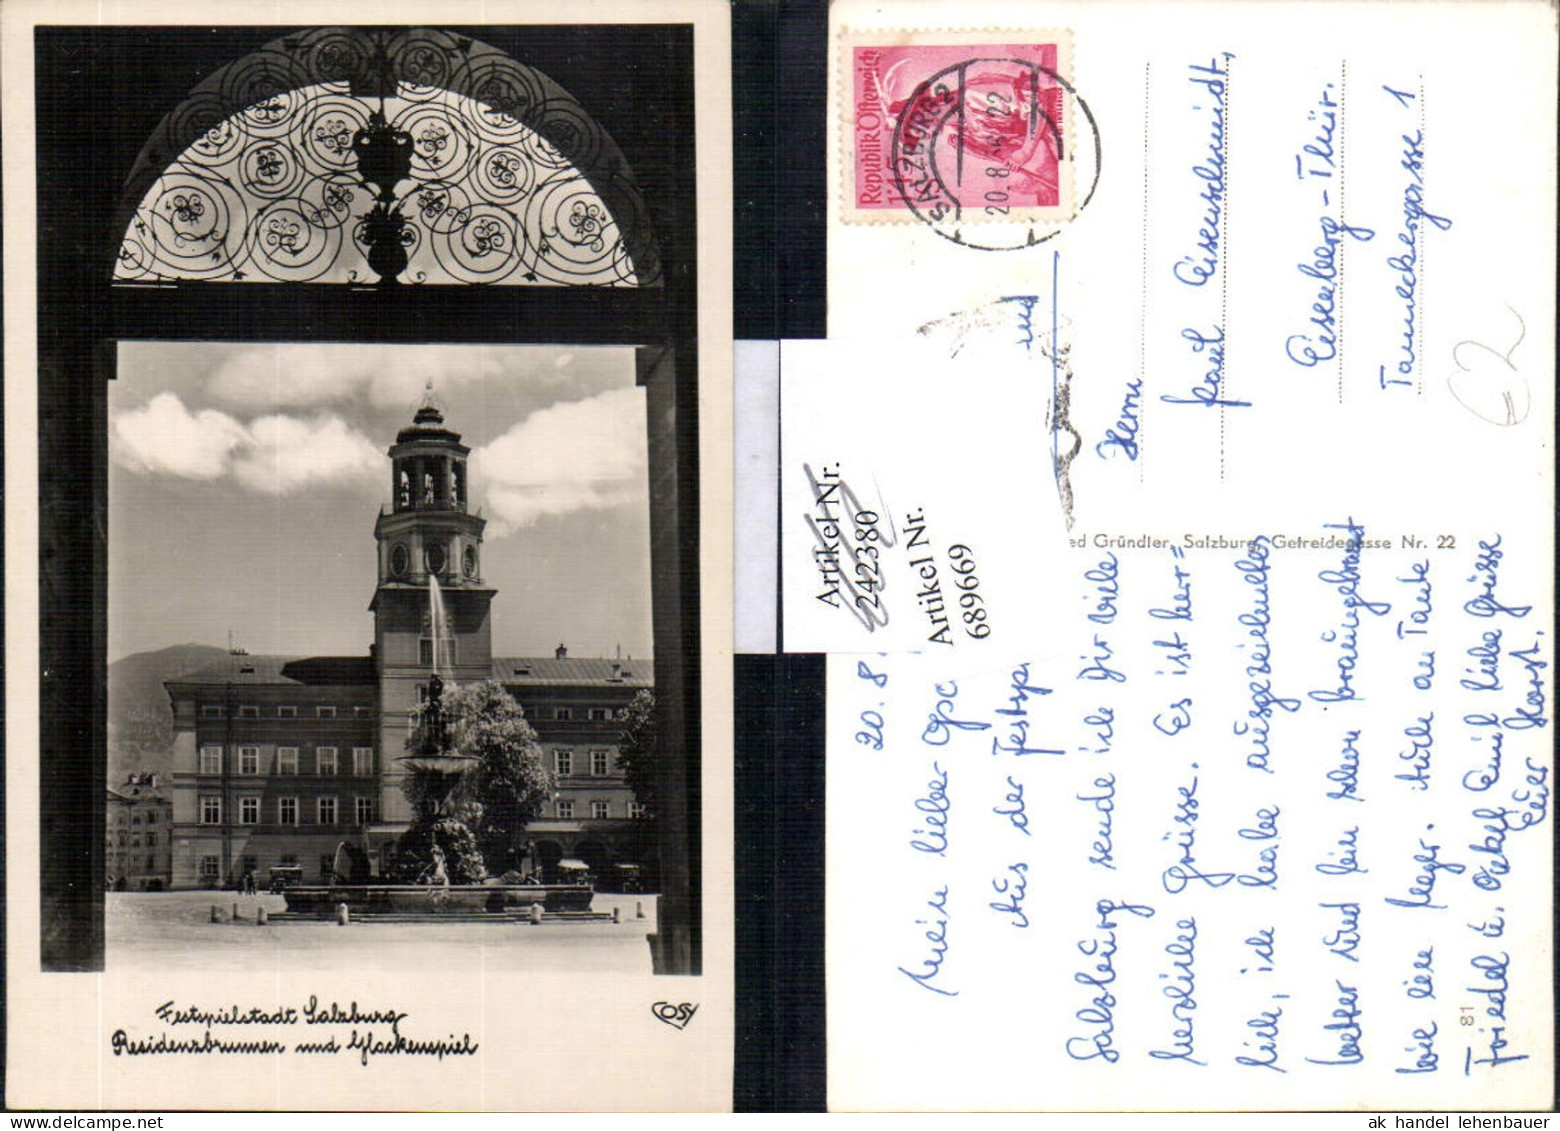 Festspielstadt Salzburg
Residenzbrunnen und Glockenspiel
COSY
Republik Österreich
SALZBURG 2
20.8.
22
Herrn
Paul Eisenschmidt,
Eisenberg-Thür.
Tanneckergasse 1
€2
ed Gründler, Salzburg, Getreidegasse Nr. 22
Artikel Nr.
242380
Artikel Nr.
689669
20. 8
Mein lieber
Aus der Festsp
Salzburg sende ich Dir viele
herzliche Grüsse. Es ist herr=
lich, ich habe ausgezeichnetes
Wetter und bin schon braungebrannt
wie ein Neger. Auch an Tante
Friedel u. Onkel Emil liebe Grüsse
Euer Horst.
81
ak handel lehenbauer